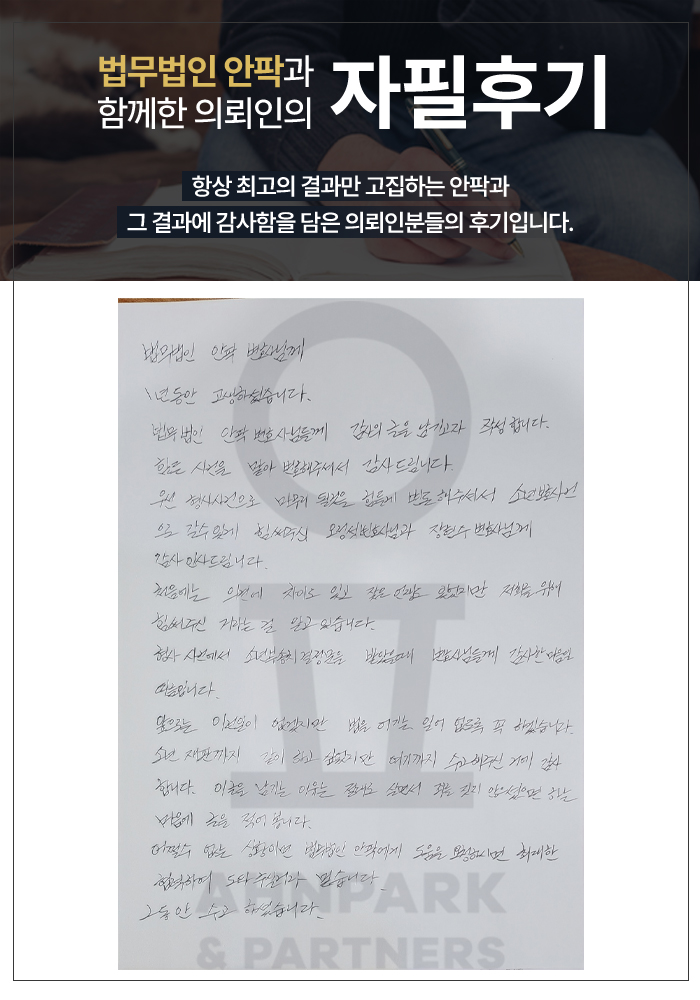 법무법인 안팍과
함께한 의뢰인의
자필후기
항상 최고의 결과만 고집하는 안팍과
그 결과에 감사함을 담은 의뢰인분들의 후기입니다.
법무법인 안팍 변호사님께
1년동안 고생하셨습니다.
법무법인 안팍 변호사님들께 감사의 글을 남기고자 작성합니다.
힘든 사건을 맡아 변호해주셔서 감사드립니다.
우선 형사사건으로 마무리 될것을 힘들게 변호해주셔서 소년보호사건
으로 갈수있게 힘써주신 변호사님과 변호사님께
감사인사드립니다.
처음에는 의견에 차이도 있고 잦은 연락도 저희를 위해
힘써주신 거라는 걸 알고 있습니다.
형사 사건에서 소년부송치 결정문을 받았을때 변호사님들께 감사한 마음이
앞으로는 이런일이 없겠지만 법을 어기는 일이 없도록 꼭 하겠습니다.
소년 재판까지 같이 하고 싶었지만 여기까지 수고해주신 거에 감사
합니다. 이글을 남기는 이유는 살면서 죄를 짓지 않으셨으면 하는
마음에 글을 적어 봅니다.
어쩔수 없는 상황이면 법무법인 안팍에게 도움을 요청하시면 최대한
협력하여 도와 주실거라 믿습니다.
그동안 수고 하셨습니다.
AHNPARK
& PARTNERS